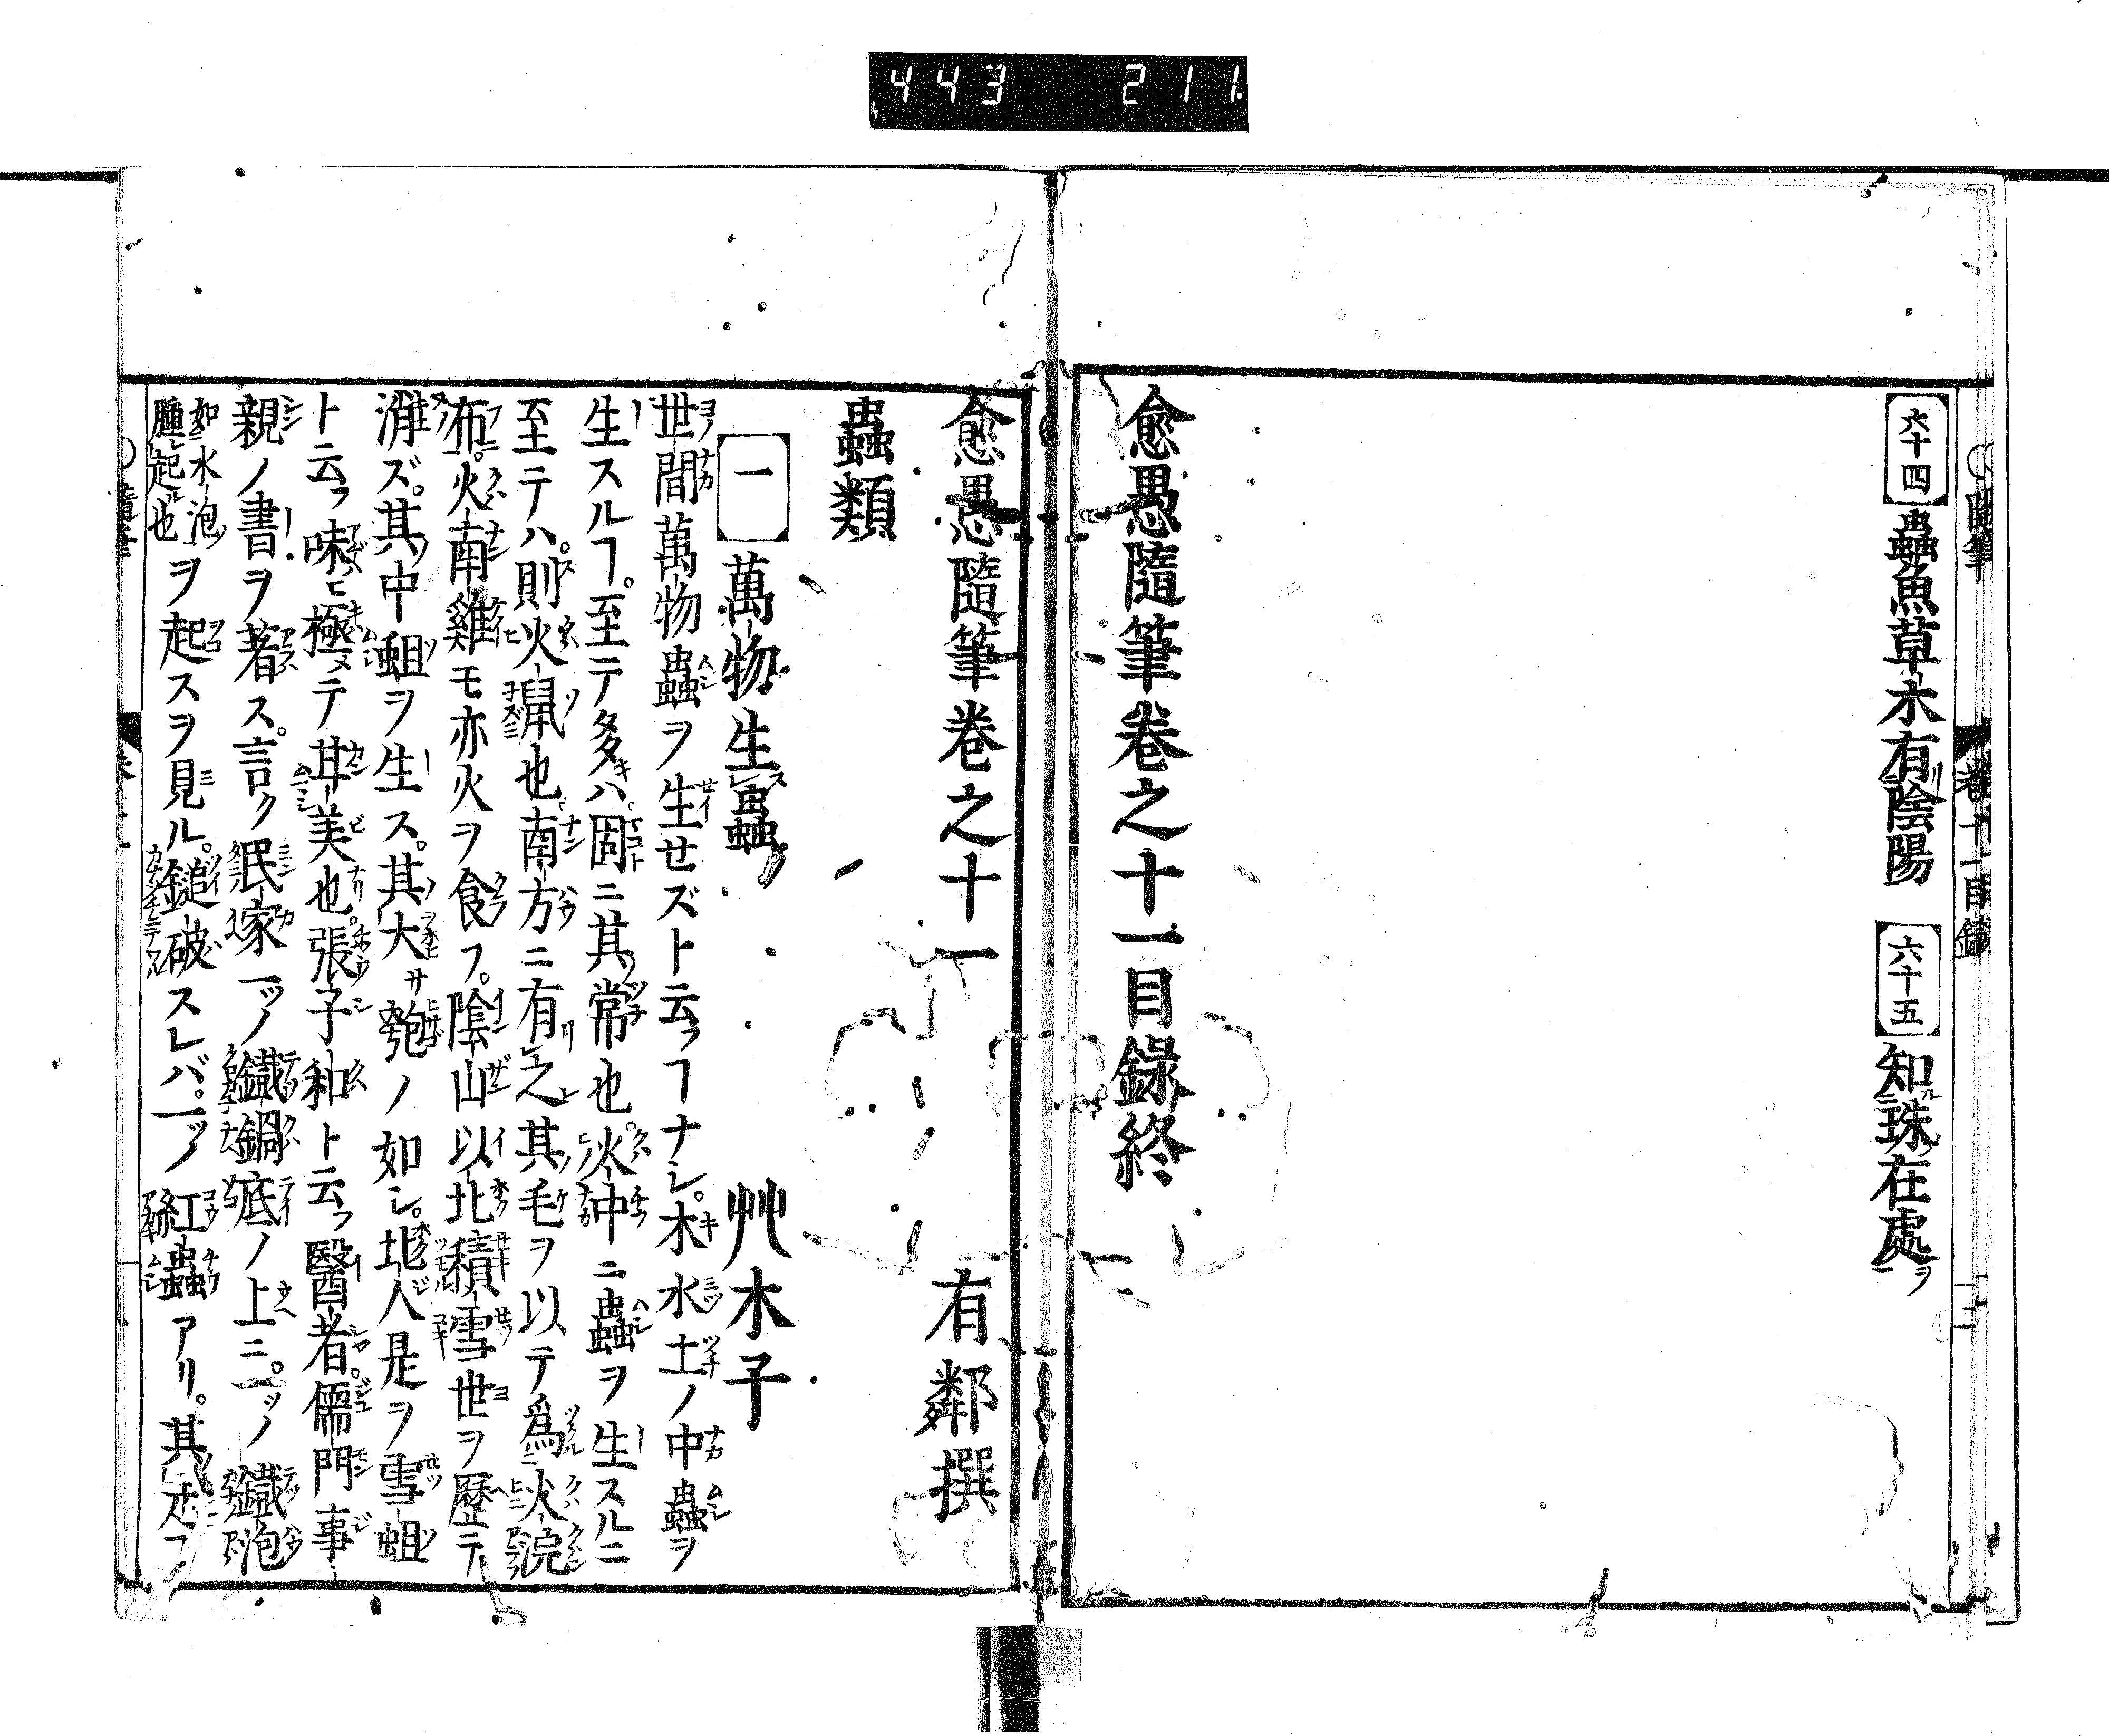 443 211.
隨筆 卷十一目録
六十四 蟲魚草木有陰陽 六十五 知珠在處
愈愚隨筆卷之十一目錄終
愈愚隨筆卷之十一 有鄰撰
蟲類
一 萬物生蟲 艸木子
世間萬物蟲ヲ生せズト云フヿナシ。木水土ノ中蟲ヲ
生スルヿ。至テ多キハ。固ニ其常也。火中ニ蟲ヲ生スルニ
至テハ。則火鼡也。南方ニ有之其毛ヲ以テ爲火浣
布。火南雞モ亦火ヲ食フ。陰山以北積雪世ヲ歷テ
消ズ。其中蛆ヲ生ス。其大サ匏ノ如シ。北人是ヲ雪蛆
ト云フ味ヒ極メテ甘美也。張子和ト云フ醫者。儒門事
親ノ書ヲ著ス。言ク氓家一ツノ鐵鍋底ノ上ニ。一ツノ鐵泡
如水泡腫起也ヲ起スヲ見ル。鎚破スレバ。一ツノ紅蟲アリ。其走フ